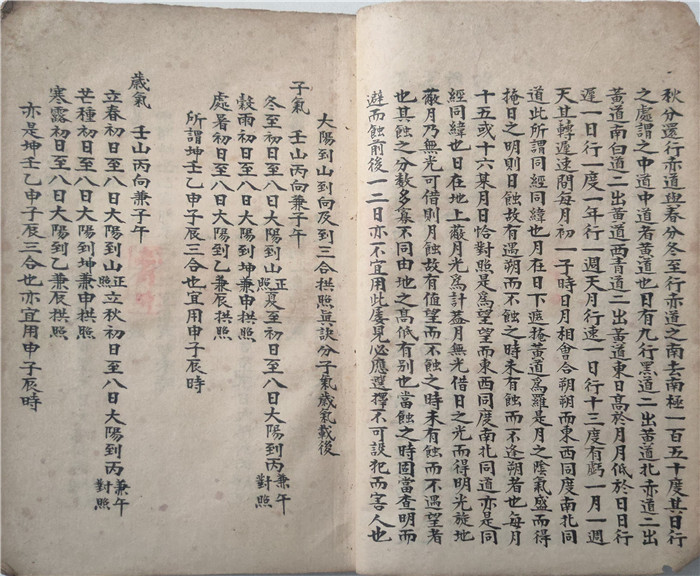 秋分還行赤道與春分同冬至行赤道之南去南極一百五十度其日行
之處謂之中道中道者黃道也日有九行黑道二出黃道北赤道二出
黃道南白道二出黃道西青道二出黃道東日高於月月低於日日行
遲一日行一度一年行一週天月行速一日行十三度有虧一月一週
天其轉遲速間每月初一子時日月相會合朔朔而東西同度南北同
道此所謂同經同緯也月在日下遮掩黃道為羅是月之陰氣盛而得
掩日之明則日蝕故有遇朔而不蝕之時未有蝕而不逢朔者也每月
十五或十六某月日恰對照是為望望而東西同度南北同道亦是同
經同緯也日在地上蔽月光為計蓋月無光借日之光而得明光旋地
蔽月乃無光可借則月蝕故有值望而不蝕之時未有蝕而不遇望者
也其蝕之分數多寡不同由地之高低有別也當蝕之時固當查明而
避而蝕前後一二日亦不宜用此屢見必應選擇不可誤犯而害人也
太陽到山到向及到三合拱照真訣分子氣歲氣載後
子氣 壬山丙向兼子午
冬至初日至八日大陽到山正照夏至初日至八日大陽到丙兼午對照
穀雨初日至八日大陽到坤兼申拱照
處暑初日至八日大陽到乙兼辰拱照
所謂坤壬乙申子辰三合也宜用申子辰時
歲氣 壬山丙向兼子午
立春初日至八日大陽到山正照立秋初日至八日大陽到丙兼午對照
芒種初日至八日大陽到坤兼申拱照
寒露初日至八日大陽到乙兼辰拱照
亦是坤壬乙申子辰三合也亦宜用申子辰時